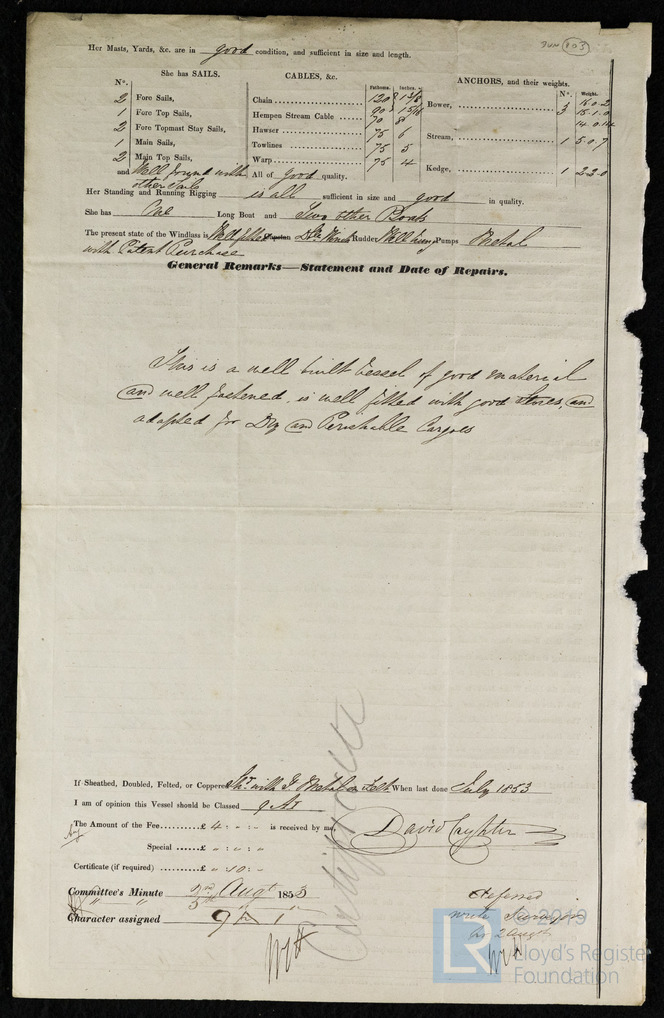 Her Masts, Yards, &c. are in good condition, and sufficient in size and length.
She has SAILS.
Nº.
2 Fore Sails,
1 Fore Top Sails,
2 Fore Topmast Stay Sails,
1 Main Sails,
2 Main Top Sails,
and Well found with
other Sails
CABLES, &c.
Fathoms. Inches.
Chain 120 1 3/8
90 1 5/16
Hempen Stream Cable 70 8
Hawser 75 6
Towlines 75 5
Warp 75 4
All of good quality.
ANCHORS, and their weights.
Nº. Weight.
Bower, 3 16.0.2
15.1.0
14.0.14
Stream, 1 5.0.7
Kedge, 1 2.2.0
Her Standing and Running Rigging is all sufficient in size and good in quality.
She has One Long Boat and Two other Boats
The present state of the Windlass is Well fitted Capstan Winch Rudder Well hung Pumps Metal
with Patent Purchase
General Remarks—Statement and Date of Repairs.
This is a well built Vessel of good material
and well fastened. is well fitted with good Stores, and
adapted for Dry and Perishable Cargoes
If Sheathed, Doubled, Felted, or Coppered with Y Metal on Felt When last done July 1853
I am of opinion this Vessel should be Classed 9 A1
The Amount of the Fee £ 4 : - : - is received by me,
David
Special £ " : " : "
Certificate (if required) £ " : 10 : -
Committee's Minute 2nd Augt 1853
5th " "
Character assigned 9 A 1
Certificate
Deferred
write Surveyor
2 Augt
© 2019
LR
Lloyd's Register
Foundation